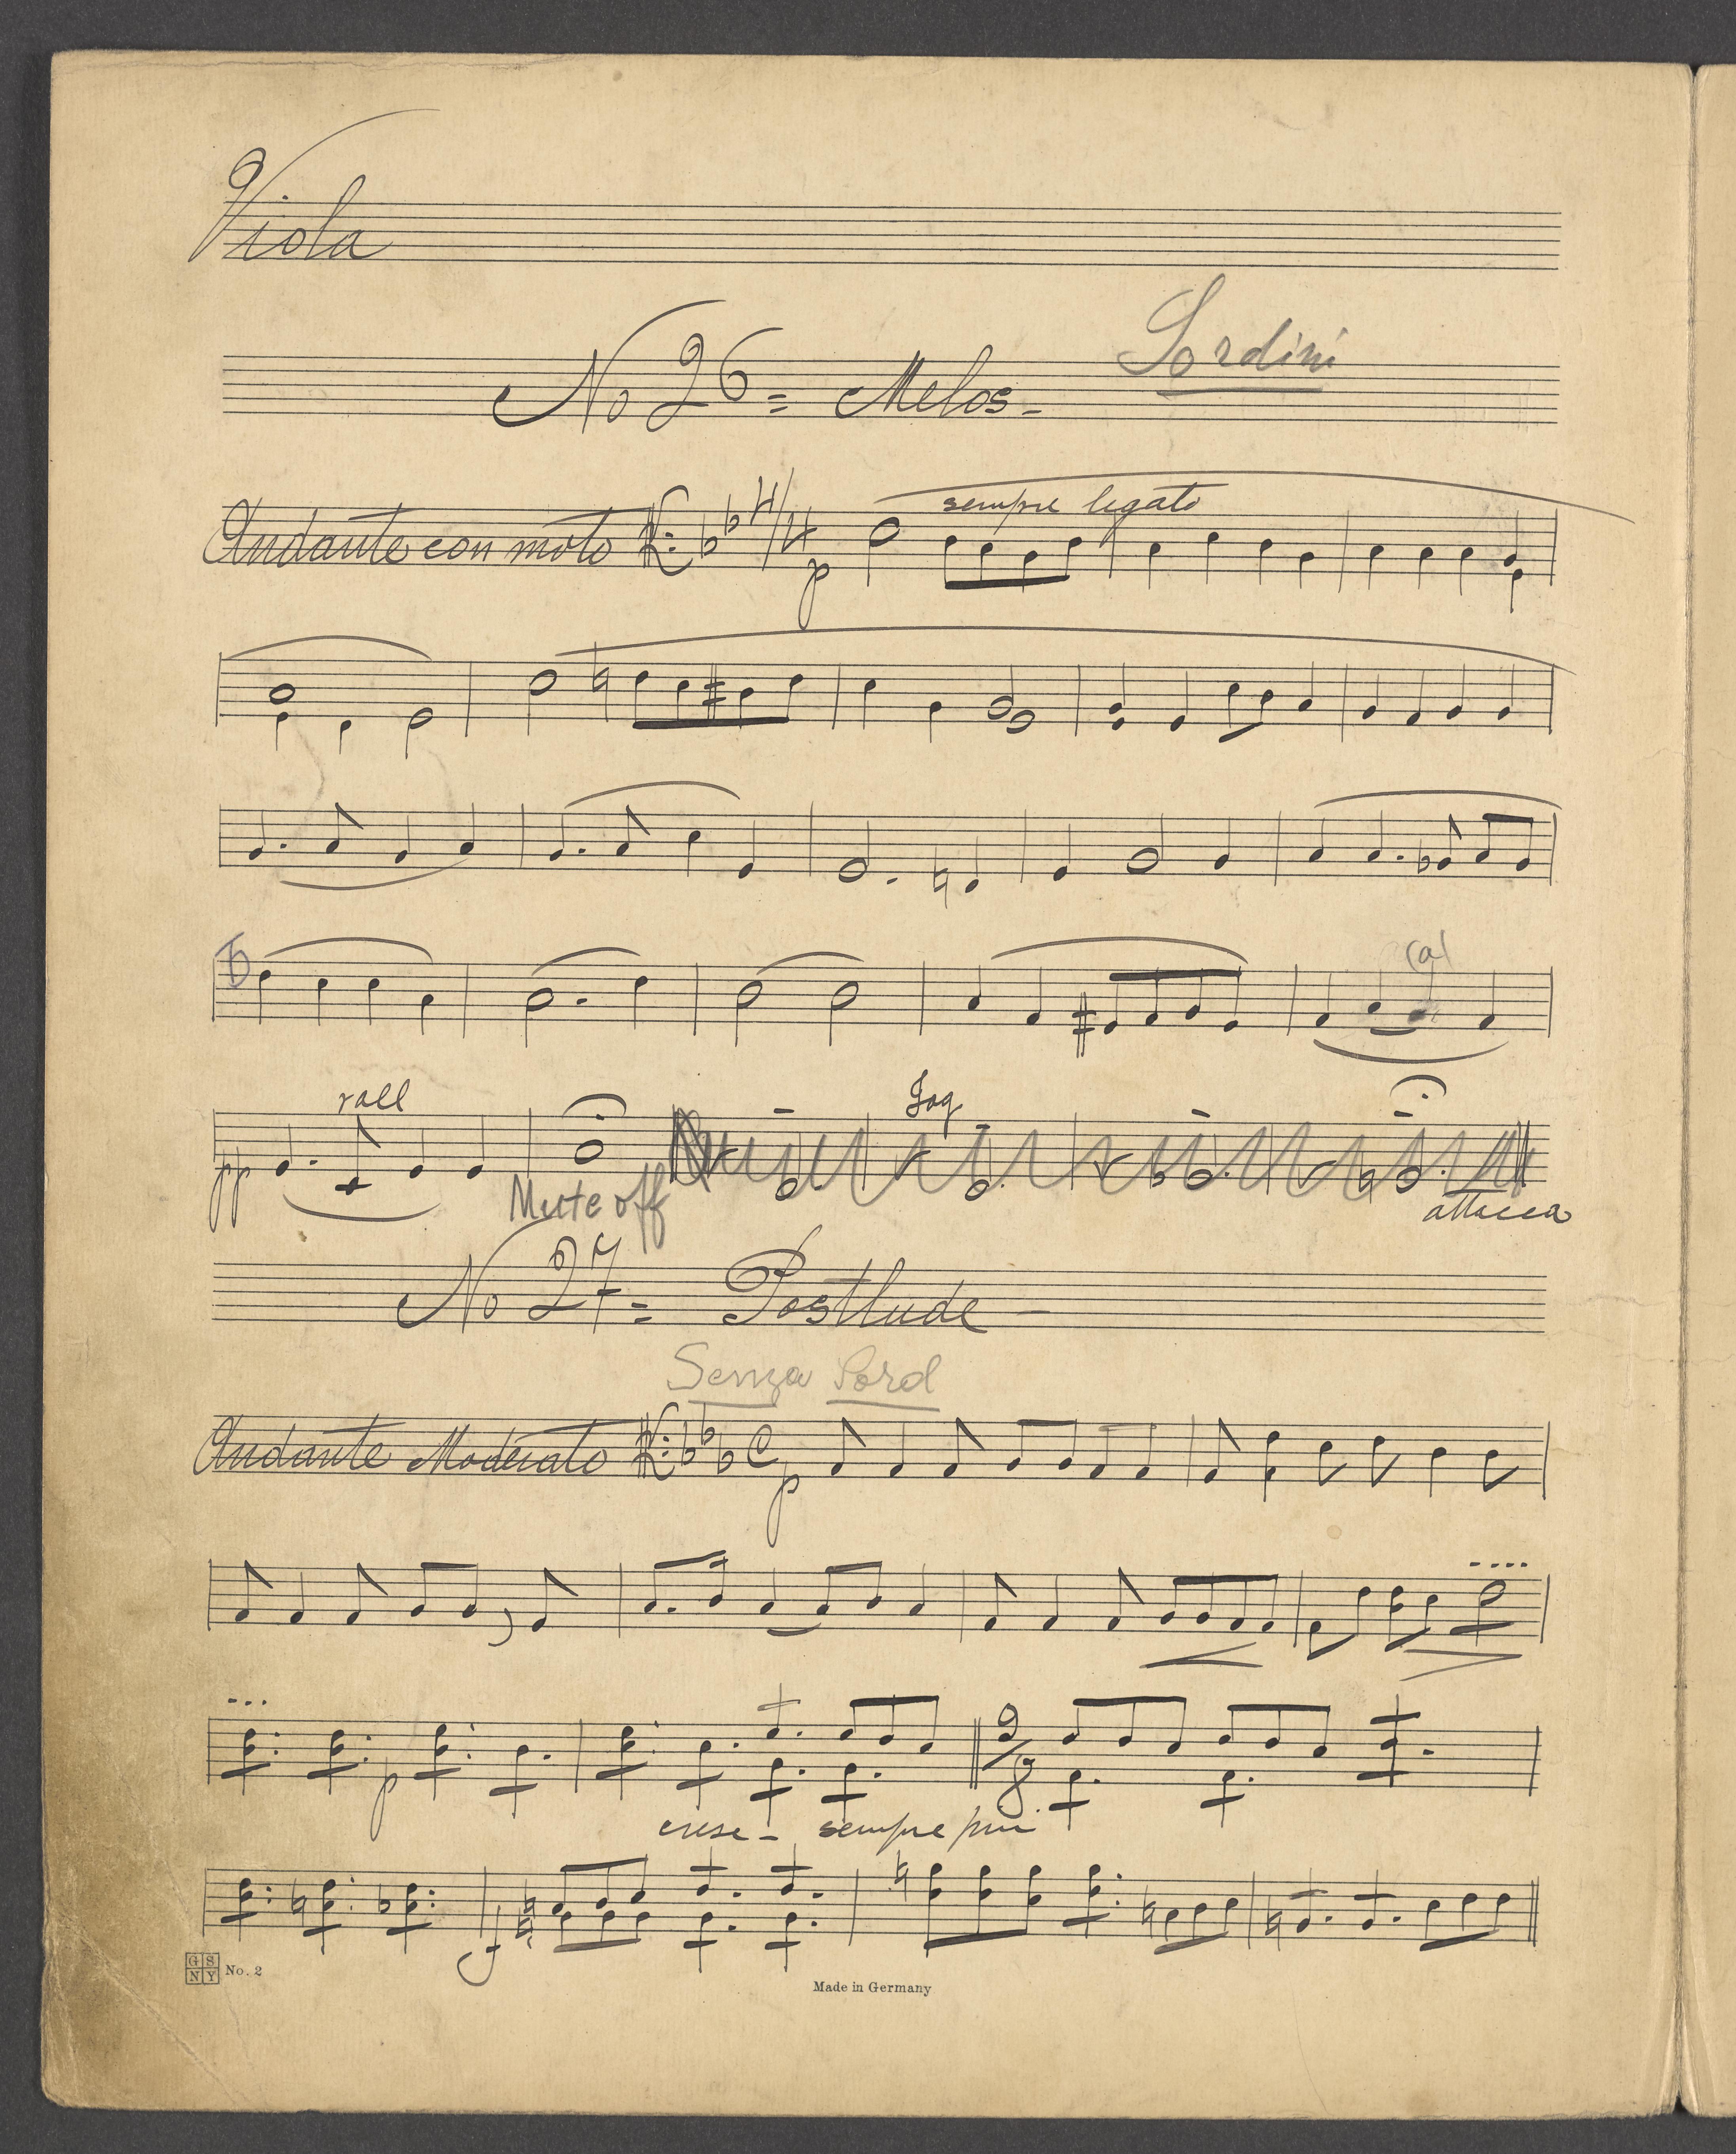 Viola
No 26 = Melos - Sordini
Andante con moto 4/4 p sempre legato
(a)
pp rall Mute off Fag attacca
No 27 = Postlude -
Senza Sord
Andante Moderato C p
p
9/8
cresc - sempre piu
f
GS NY No. 2
Made in Germany